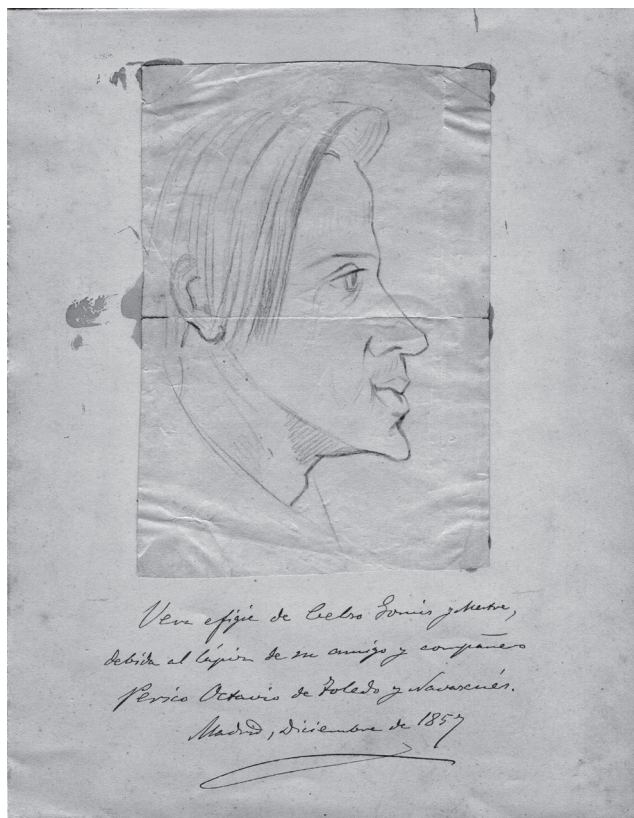 Vera efigie de Celso Gomis y Mestre,
debida al lápiz de su amigo y compañero
Perico Octavio de Toledo y Navascués.
Madrid, diciembre de 1857